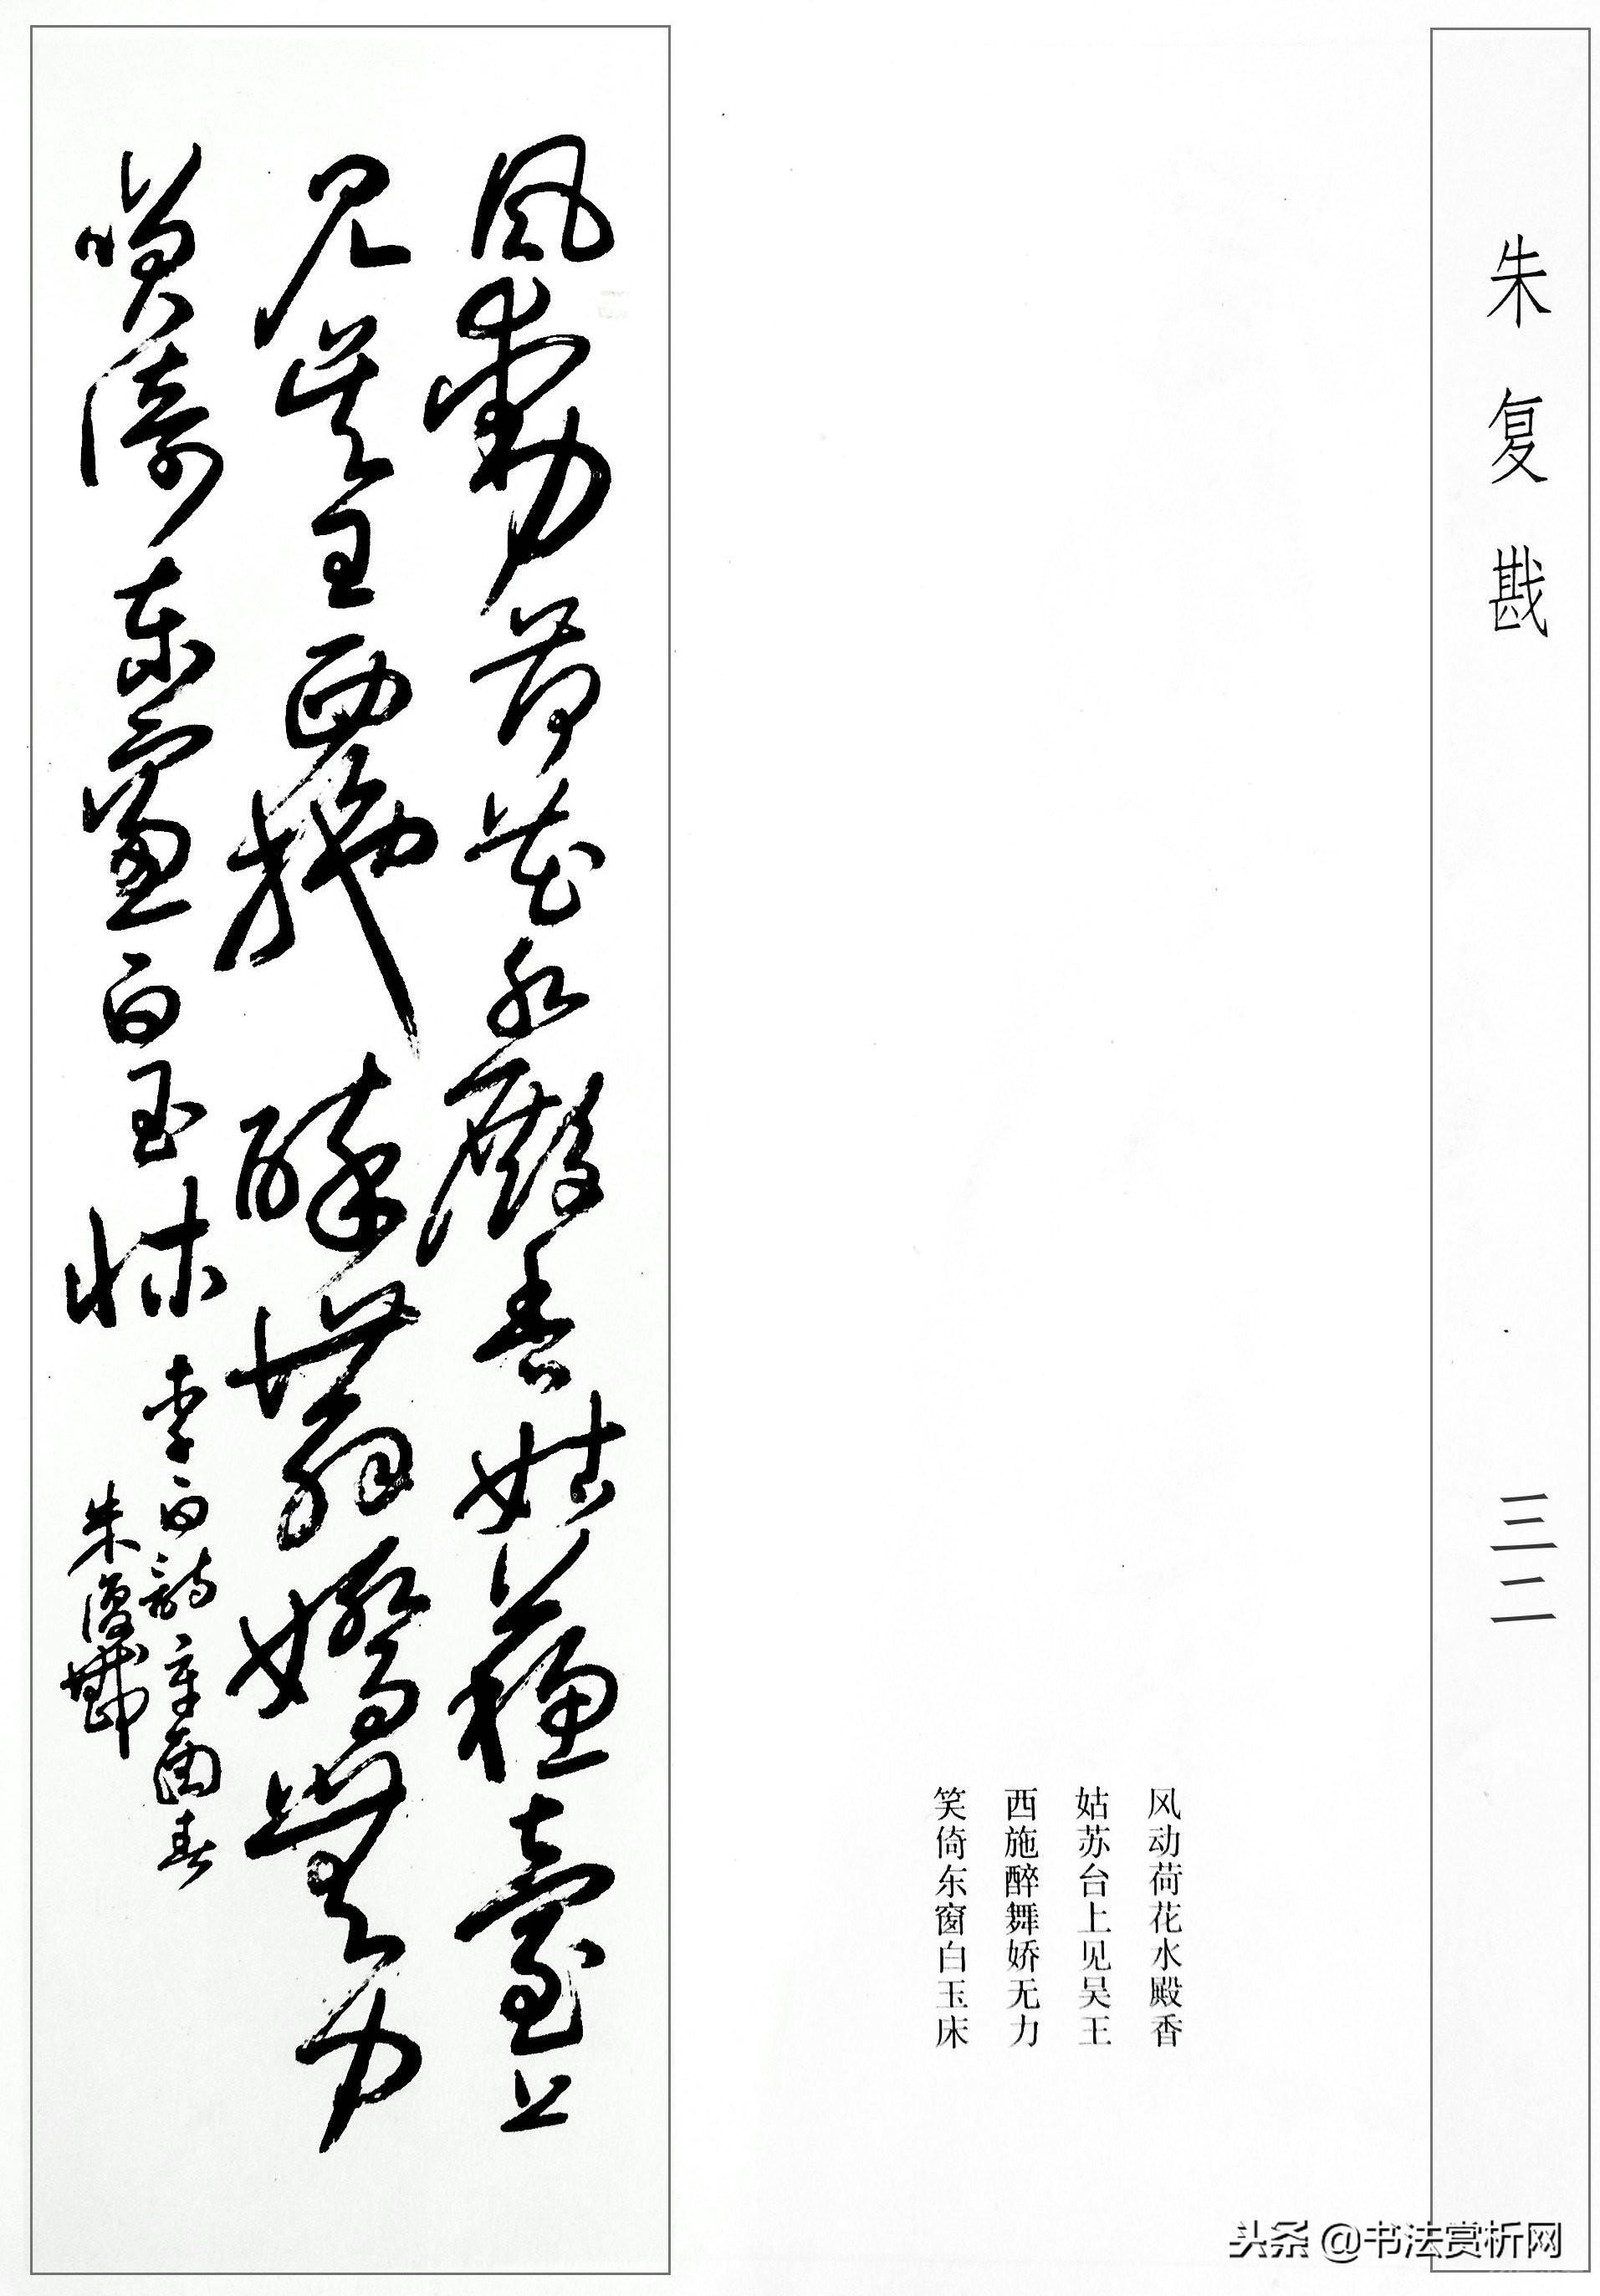 朱复戡
三二
风动荷花水殿香
姑苏台上见吴王
西施醉舞娇无力
笑倚东窗白玉床
風動荷花水殿香姑蘇臺上
見吳王西施醉舞嬌無力
笑倚東窗白玉牀
李白詩 辛酉春
朱復戡
头条 @书法赏析网